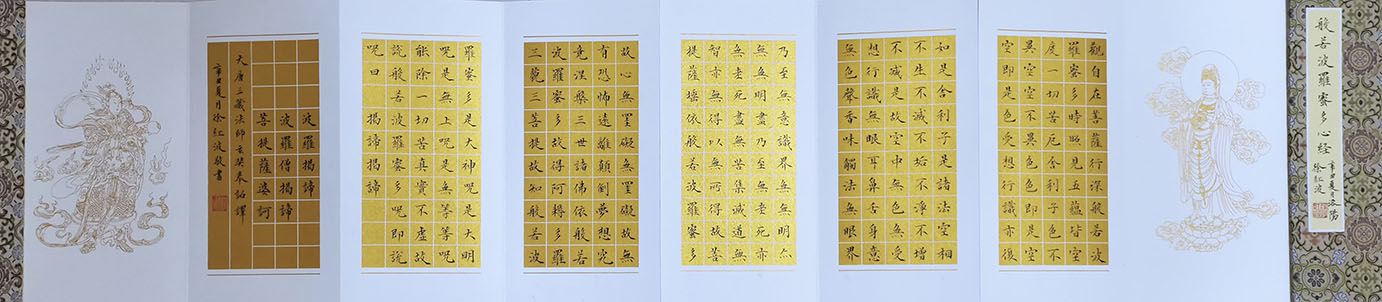 般若波羅蜜多心經
辛丑夏月洛陽
徐紅波
觀自在菩薩行深般若波
羅蜜多時照見五蘊皆空
度一切苦厄舍利子色不
異空空不異色色即是空
空即是色受想行識亦復
如是舍利子是諸法空相
不生不滅不垢不淨不增
不減是故空中無色無受
想行識無眼耳鼻舌身意
無色聲香味觸法無眼界
乃至無意識界無無明亦
無無明盡乃至無老死亦
無老死盡無苦集滅道無
智亦無得以無所得故菩
提薩埵依般若波羅蜜多
故心無罣礙無罣礙故無
有恐怖遠離顛倒夢想究
竟涅槃三世諸佛依般若
波羅蜜多故得阿耨多羅
三藐三菩提故知般若波
羅蜜多是大神呪是大明
呪是無上呪是無等等呪
能除一切苦真實不虛故
說般若波羅蜜多呪即說
呪曰揭諦揭諦
波羅揭諦
波羅僧揭諦
菩提薩婆訶
大唐三藏法師玄奘奉詔譯
辛丑夏月徐紅波敬書